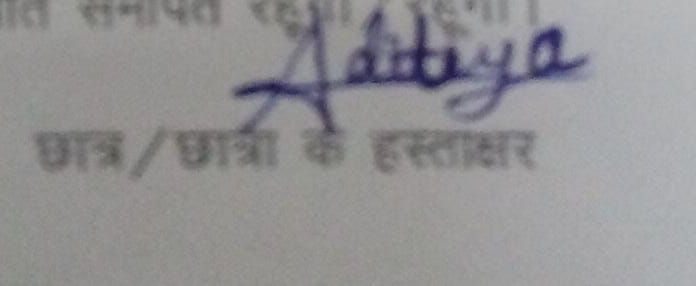 समर्पित रहूँगा / रहूँगी।
Aditya
छात्र/छात्रा के हस्ताक्षर